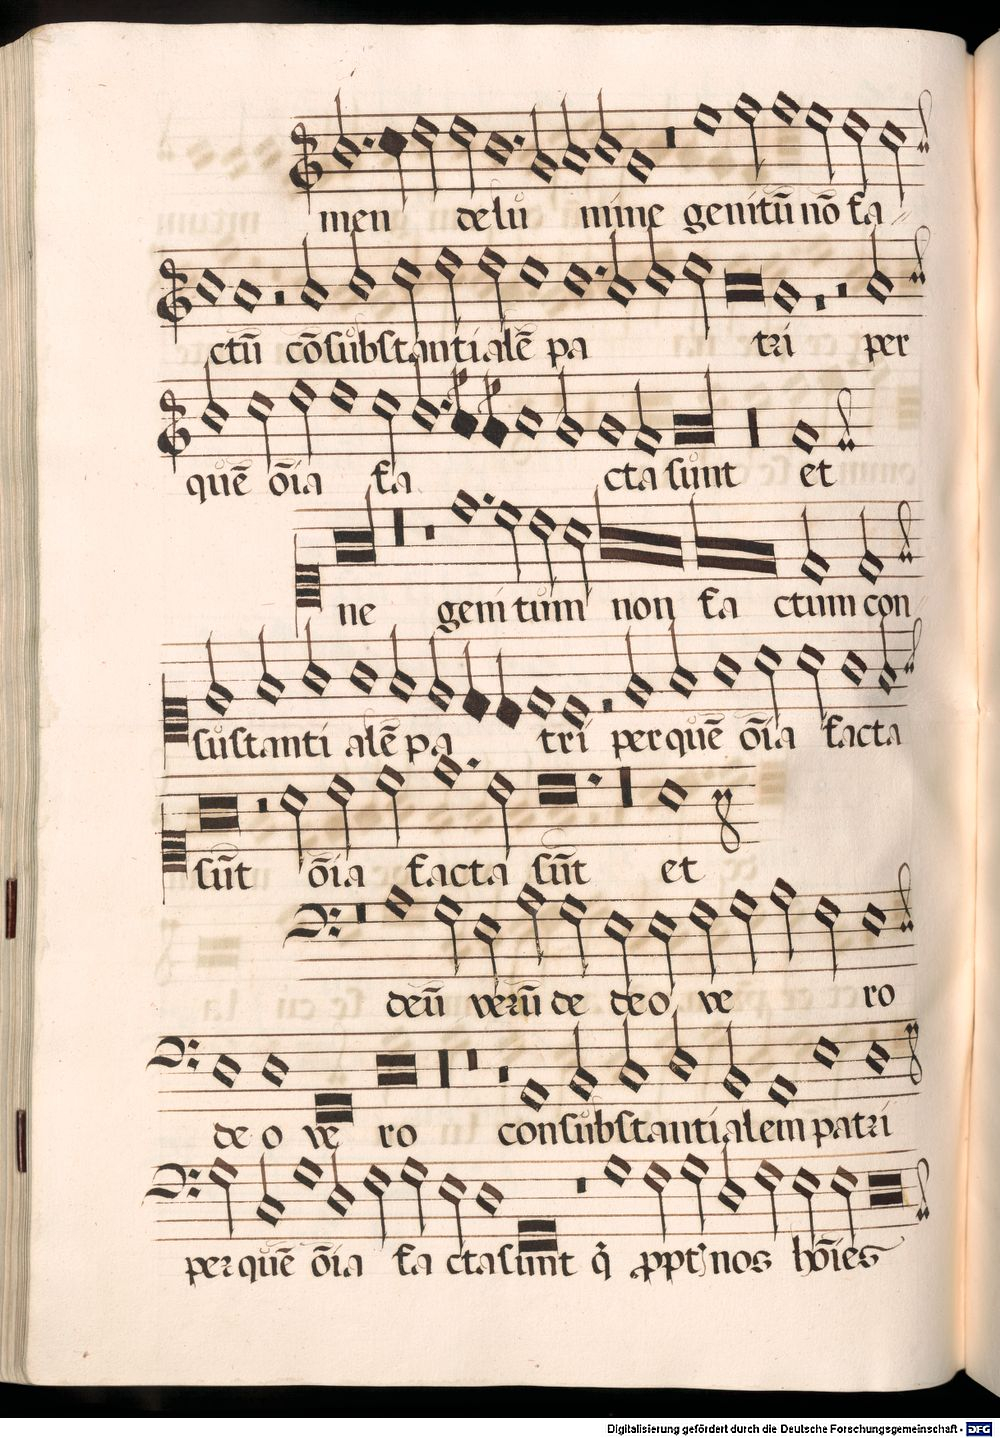 men de lu mine genitū nō fa
ctū cōsubstantialē pa tri per
quē ōīa fa cta sunt et
ne genitum non fa ctum con
sustanti alē pa tri per quē ōīa facta
sūt ōīa facta sūt et
deū verū de deo ve ro
de o ve ro consubstantialem patri
per quē ōīa fa cta sunt q̄ nos hōīes
Digitalisierung gefördert durch die Deutsche Forschungsgemeinschaft - DFG